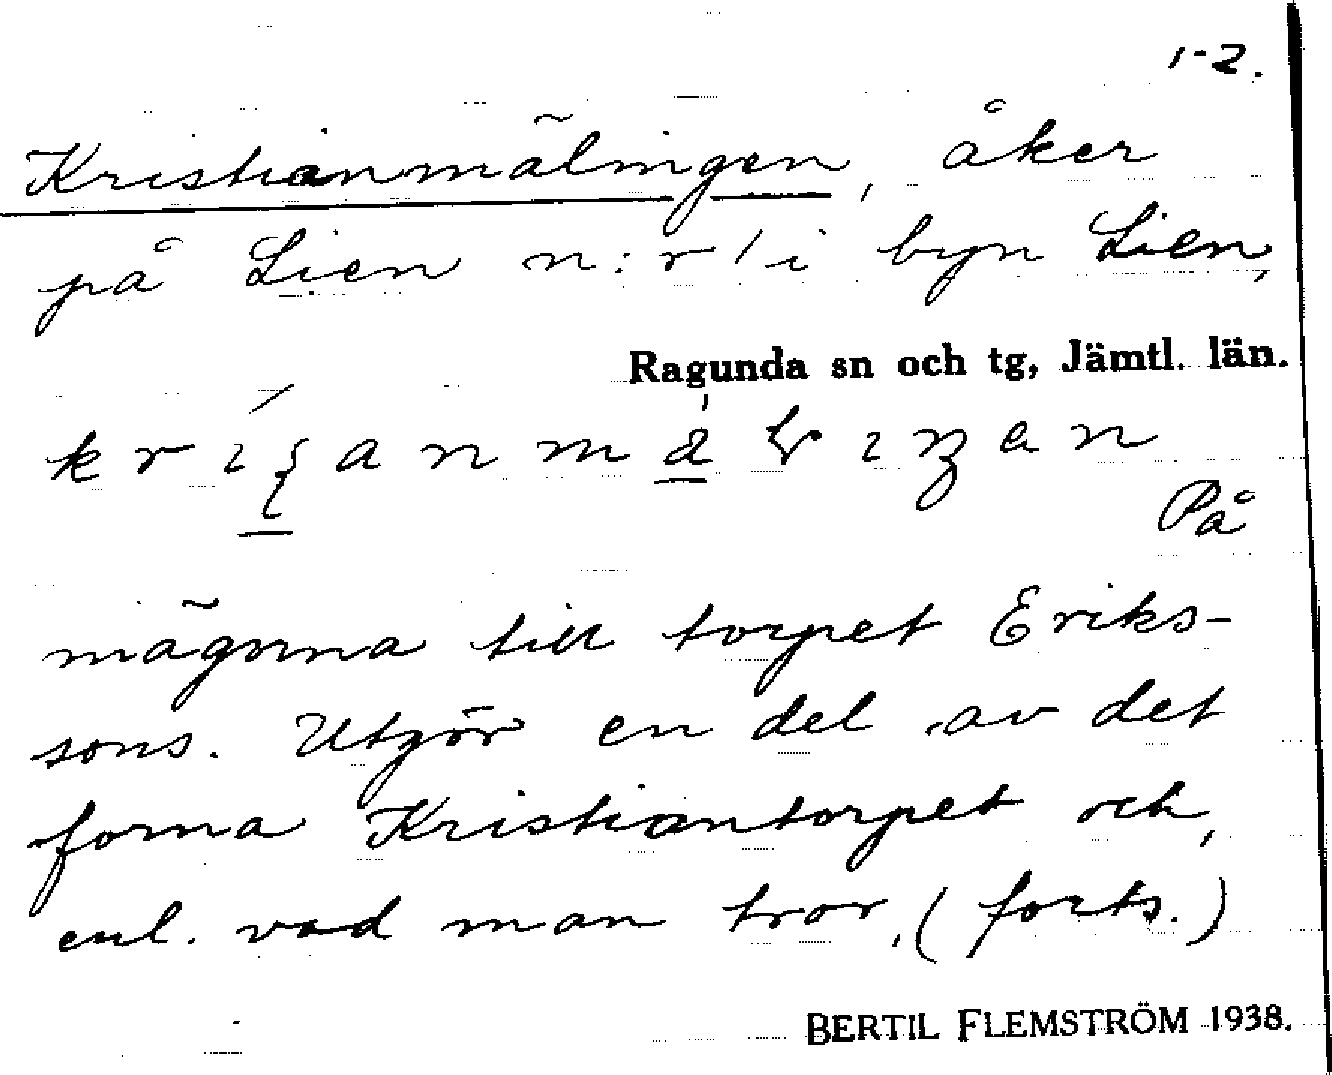 1-2.
Kristianmälingen, åker
på Lien n:r 1 i byn Lien,
Ragunda sn och tg, Jämtl. län.
På
mägnna till torpet Eriks-
sons. Utgör en del av det
forna Kristiantorpet och,
enl. vad man tror, (forts.)
BERTIL FLEMSTRÖM 1938.